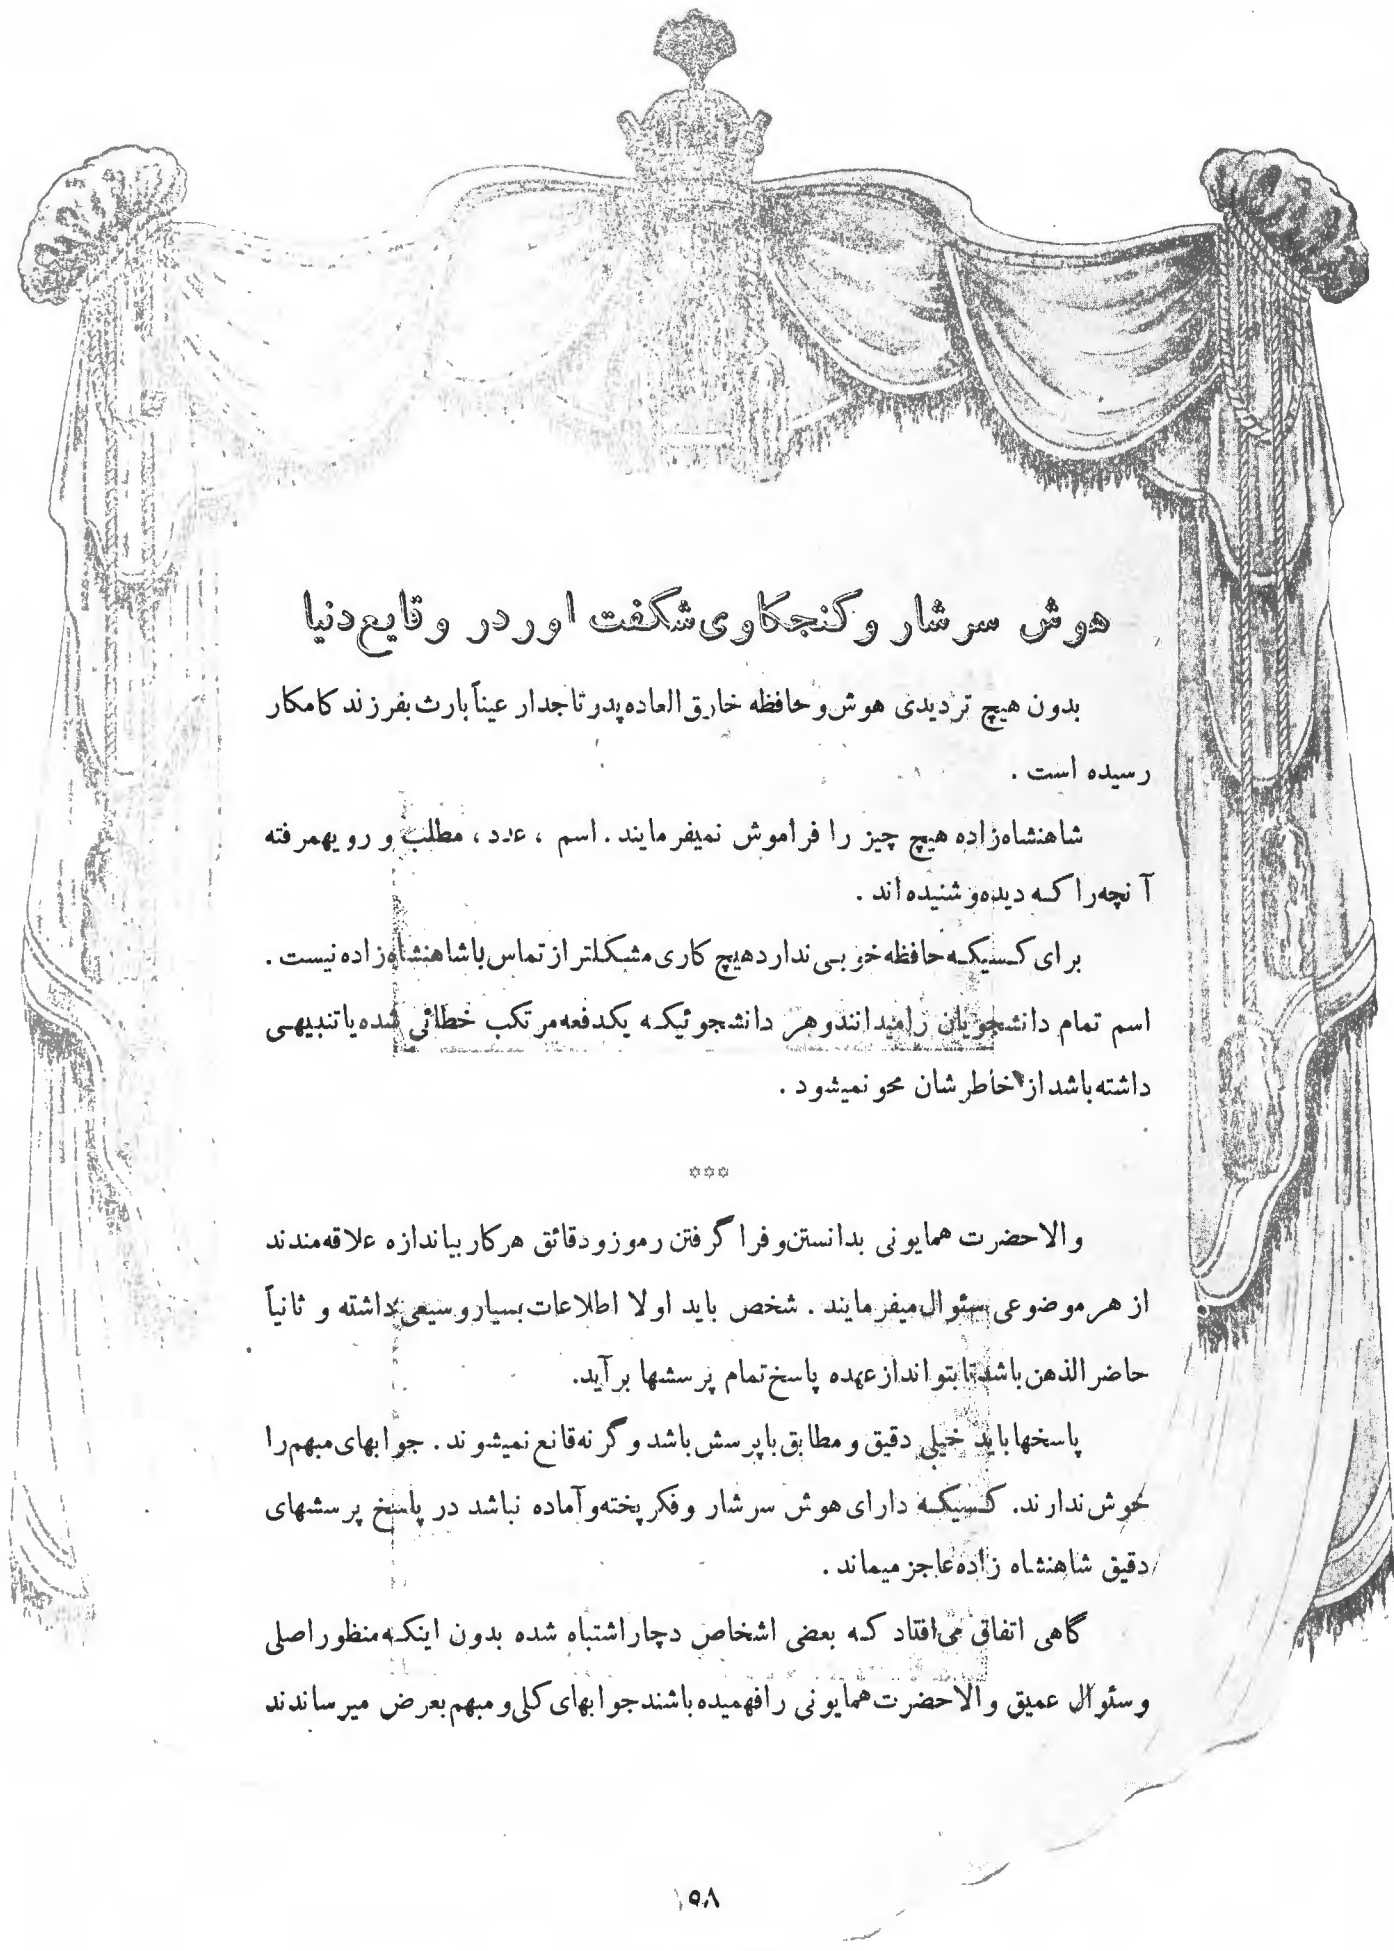 هوش سرشار و کنجکاوی شگفت اور در وقایع دنیا
بدون هیچ تردیدی هوش و حافظه خارق العاده پدر تاجدار عیناً بارث بفرزند کامکار
رسیده است .
شاهنشاه‌زاده هیچ چیز را فراموش نمیفرمایند . اسم ، عدد ، مطلب و رویهمرفته
آنچه را که دیده و شنیده اند .
برای کسیکه حافظه خوبی ندارد هیچ کاری مشکلتر از تماس با شاهنشاه‌زاده نیست .
اسم تمام دانشجویان را میدانند و هر دانشجوئیکه یکدفعه مرتکب خطائی شده یا تنبیهی
داشته باشد از خاطرشان محو نمیشود .
***
والاحضرت همایونی بدانستن و فرا گرفتن رموز و دقائق هر کار بیاندازه علاقه‌مندند
از هر موضوعی سئوال میفرمایند . شخص باید اولا اطلاعات بسیار وسیعی داشته و ثانیاً
حاضر الذهن باشد تا بتواند از عهده پاسخ تمام پرسشها برآید.
پاسخها باید خیلی دقیق و مطابق با پرسش باشد و گرنه قانع نمیشوند . جوابهای مبهم را
خوش ندارند. کسیکه دارای هوش سرشار و فکر پخته و آماده نباشد در پاسخ پرسشهای
دقیق شاهنشاه زاده عاجز میماند .
گاهی اتفاق می‌افتاد که بعضی اشخاص دچار اشتباه شده بدون اینکه منظور اصلی
و سئوال عمیق والاحضرت همایونی را فهمیده باشند جوابهای کلی و مبهم بعرض میرساندند
۱۵۸